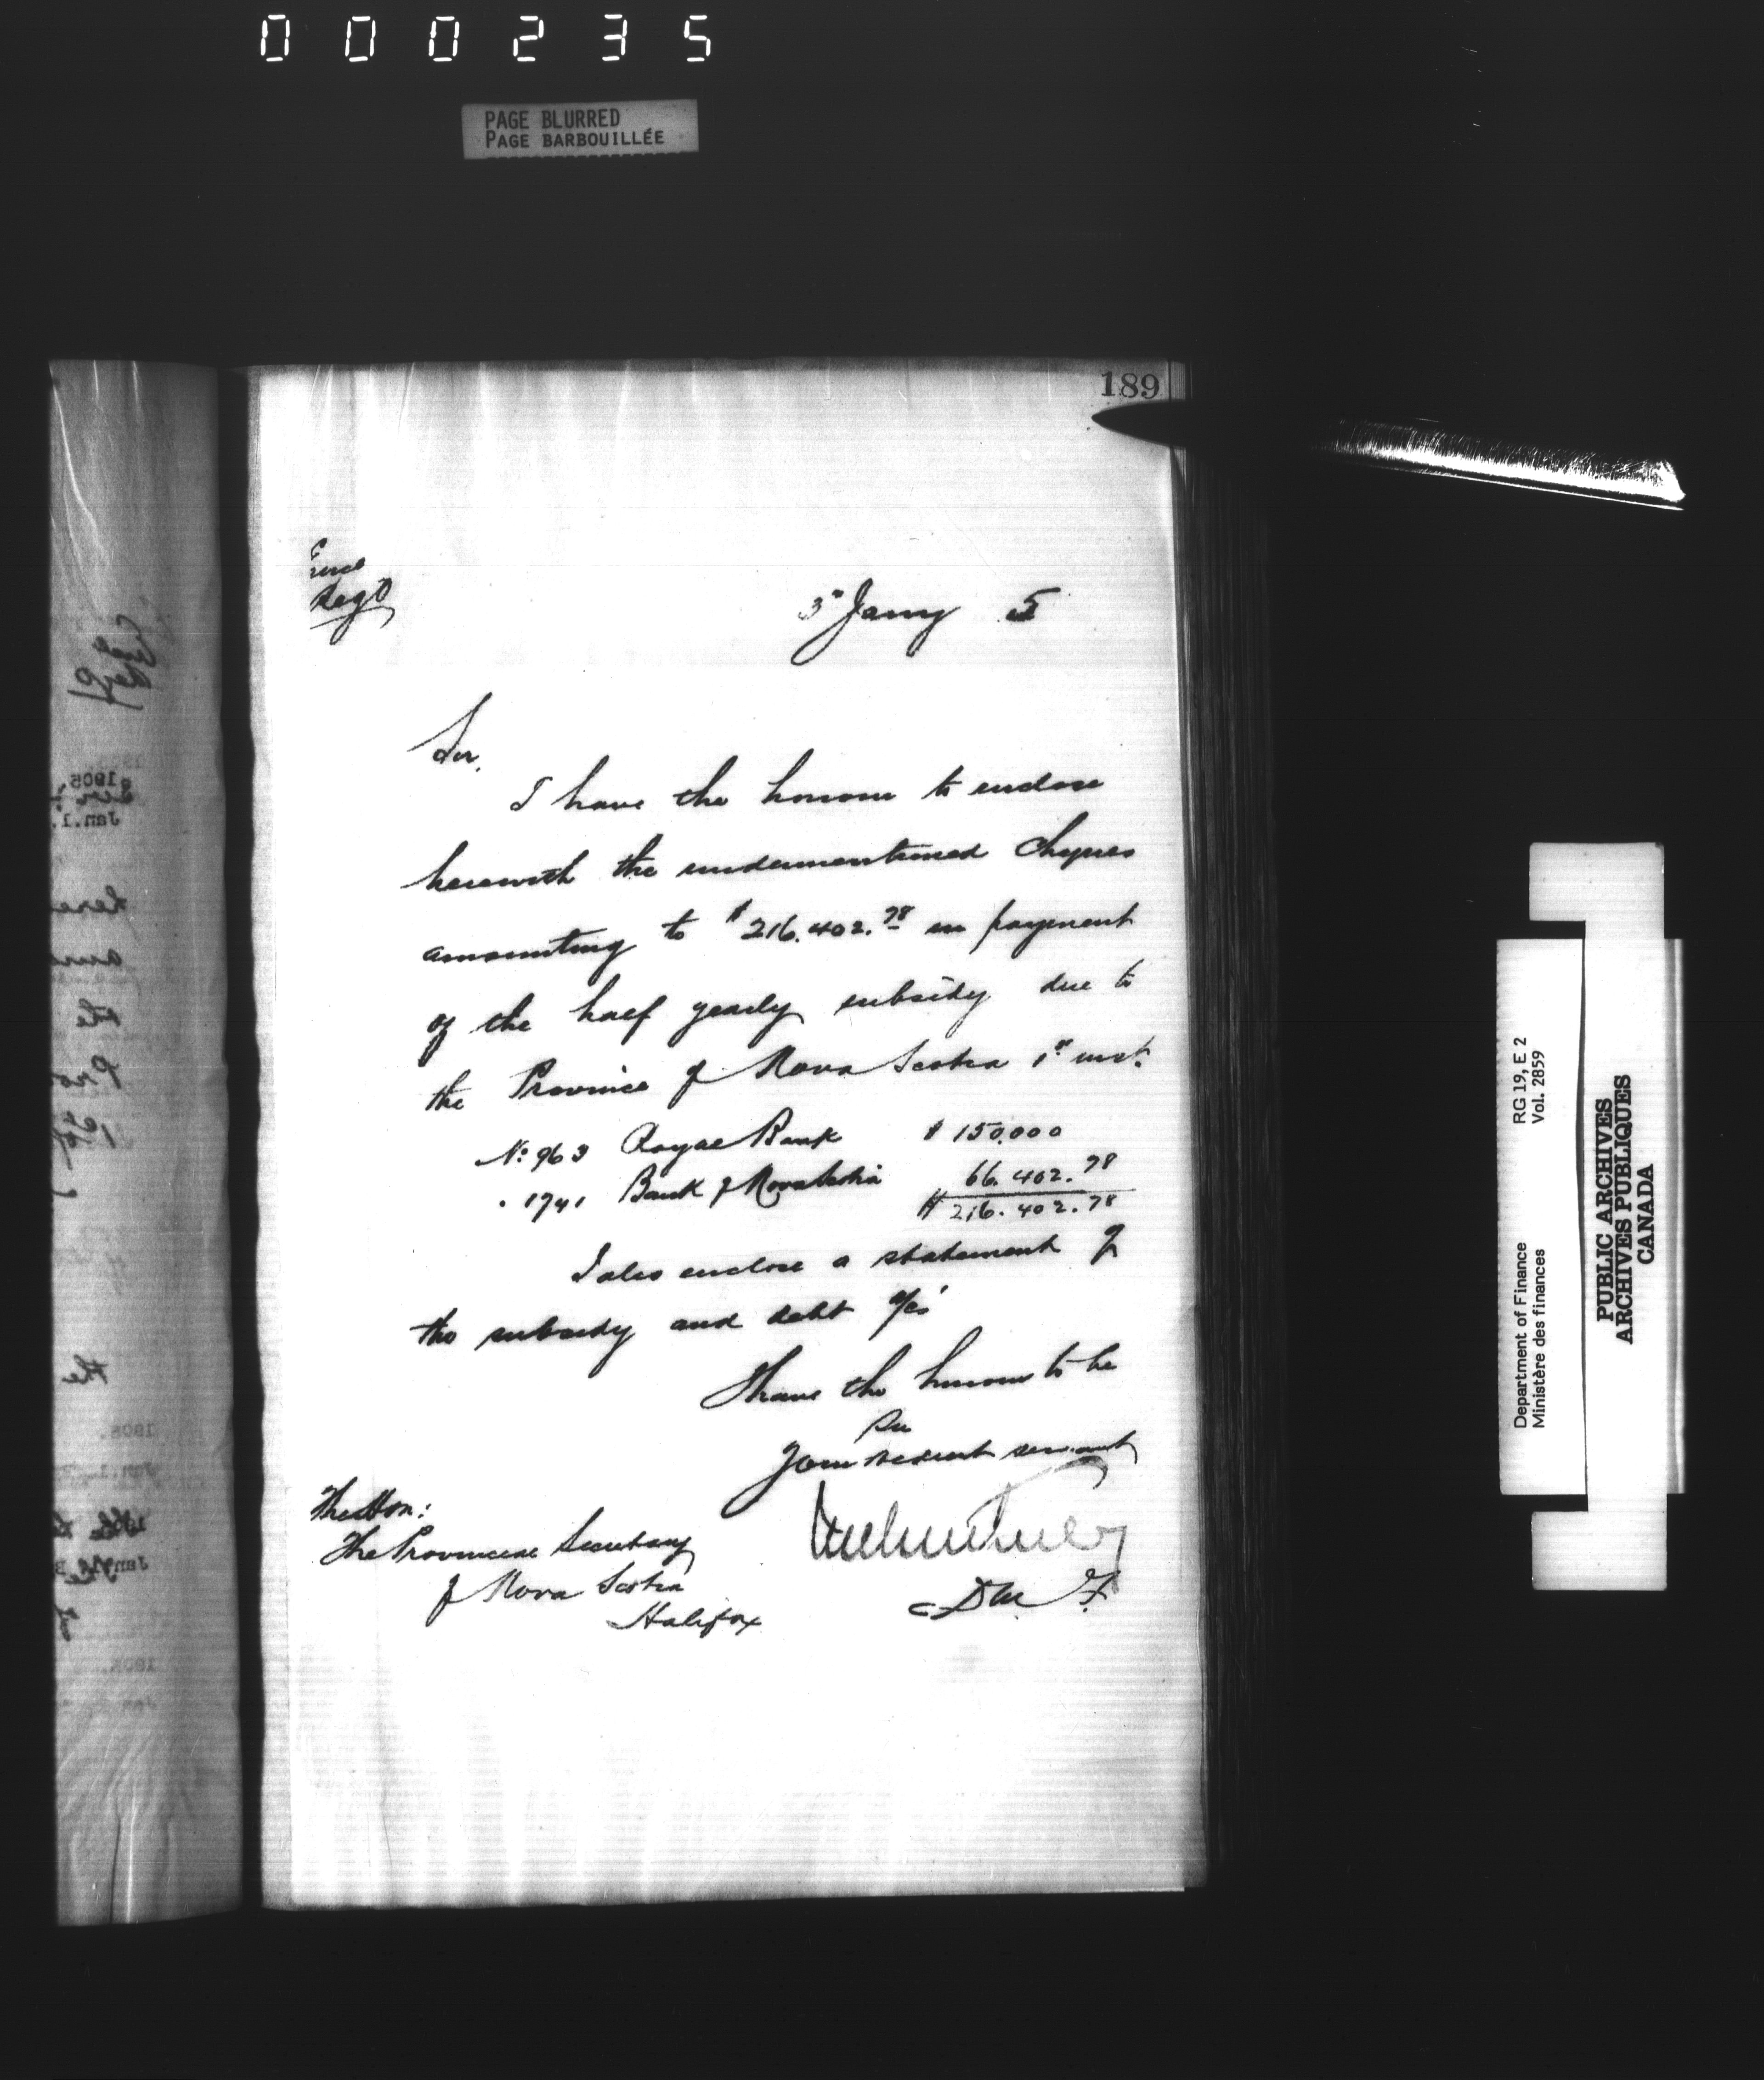 000235
PAGE BLURRED
PAGE BARBOUILLÉE
189
Encl
Regd
3rd Jany 5
Sir,
I have the honour to enclose
herewith the undermentioned cheques
amounting to $216.402.78 in payment
of the half yearly subsidy due to
the Province of Nova Scotia 1st inst.
No 963 Royal Bank $150.000
" 1741 Bank of Nova Scotia 66.402.78
$216.402.78
I also enclose a statement of
the subsidy and debt a/cs
I have the honour to be
Sir
Your obedient servant
The Hon:
The Provincial Secretary
of Nova Scotia
Halifax
D M F.
Department of Finance RG 19, E 2
Ministère des finances Vol. 2859
PUBLIC ARCHIVES
ARCHIVES PUBLIQUES
CANADA